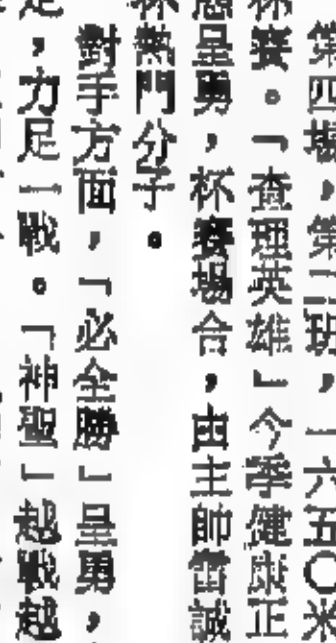 第四場，第二班，一六五〇米
杯賽。「查理英雄」今季健康正
呈勇，杯賽場合，由主帥雷誠
杯熱門分子。
對手方面，「必全勝」呈勇，
足，力足一戰。「神聖」越戰越